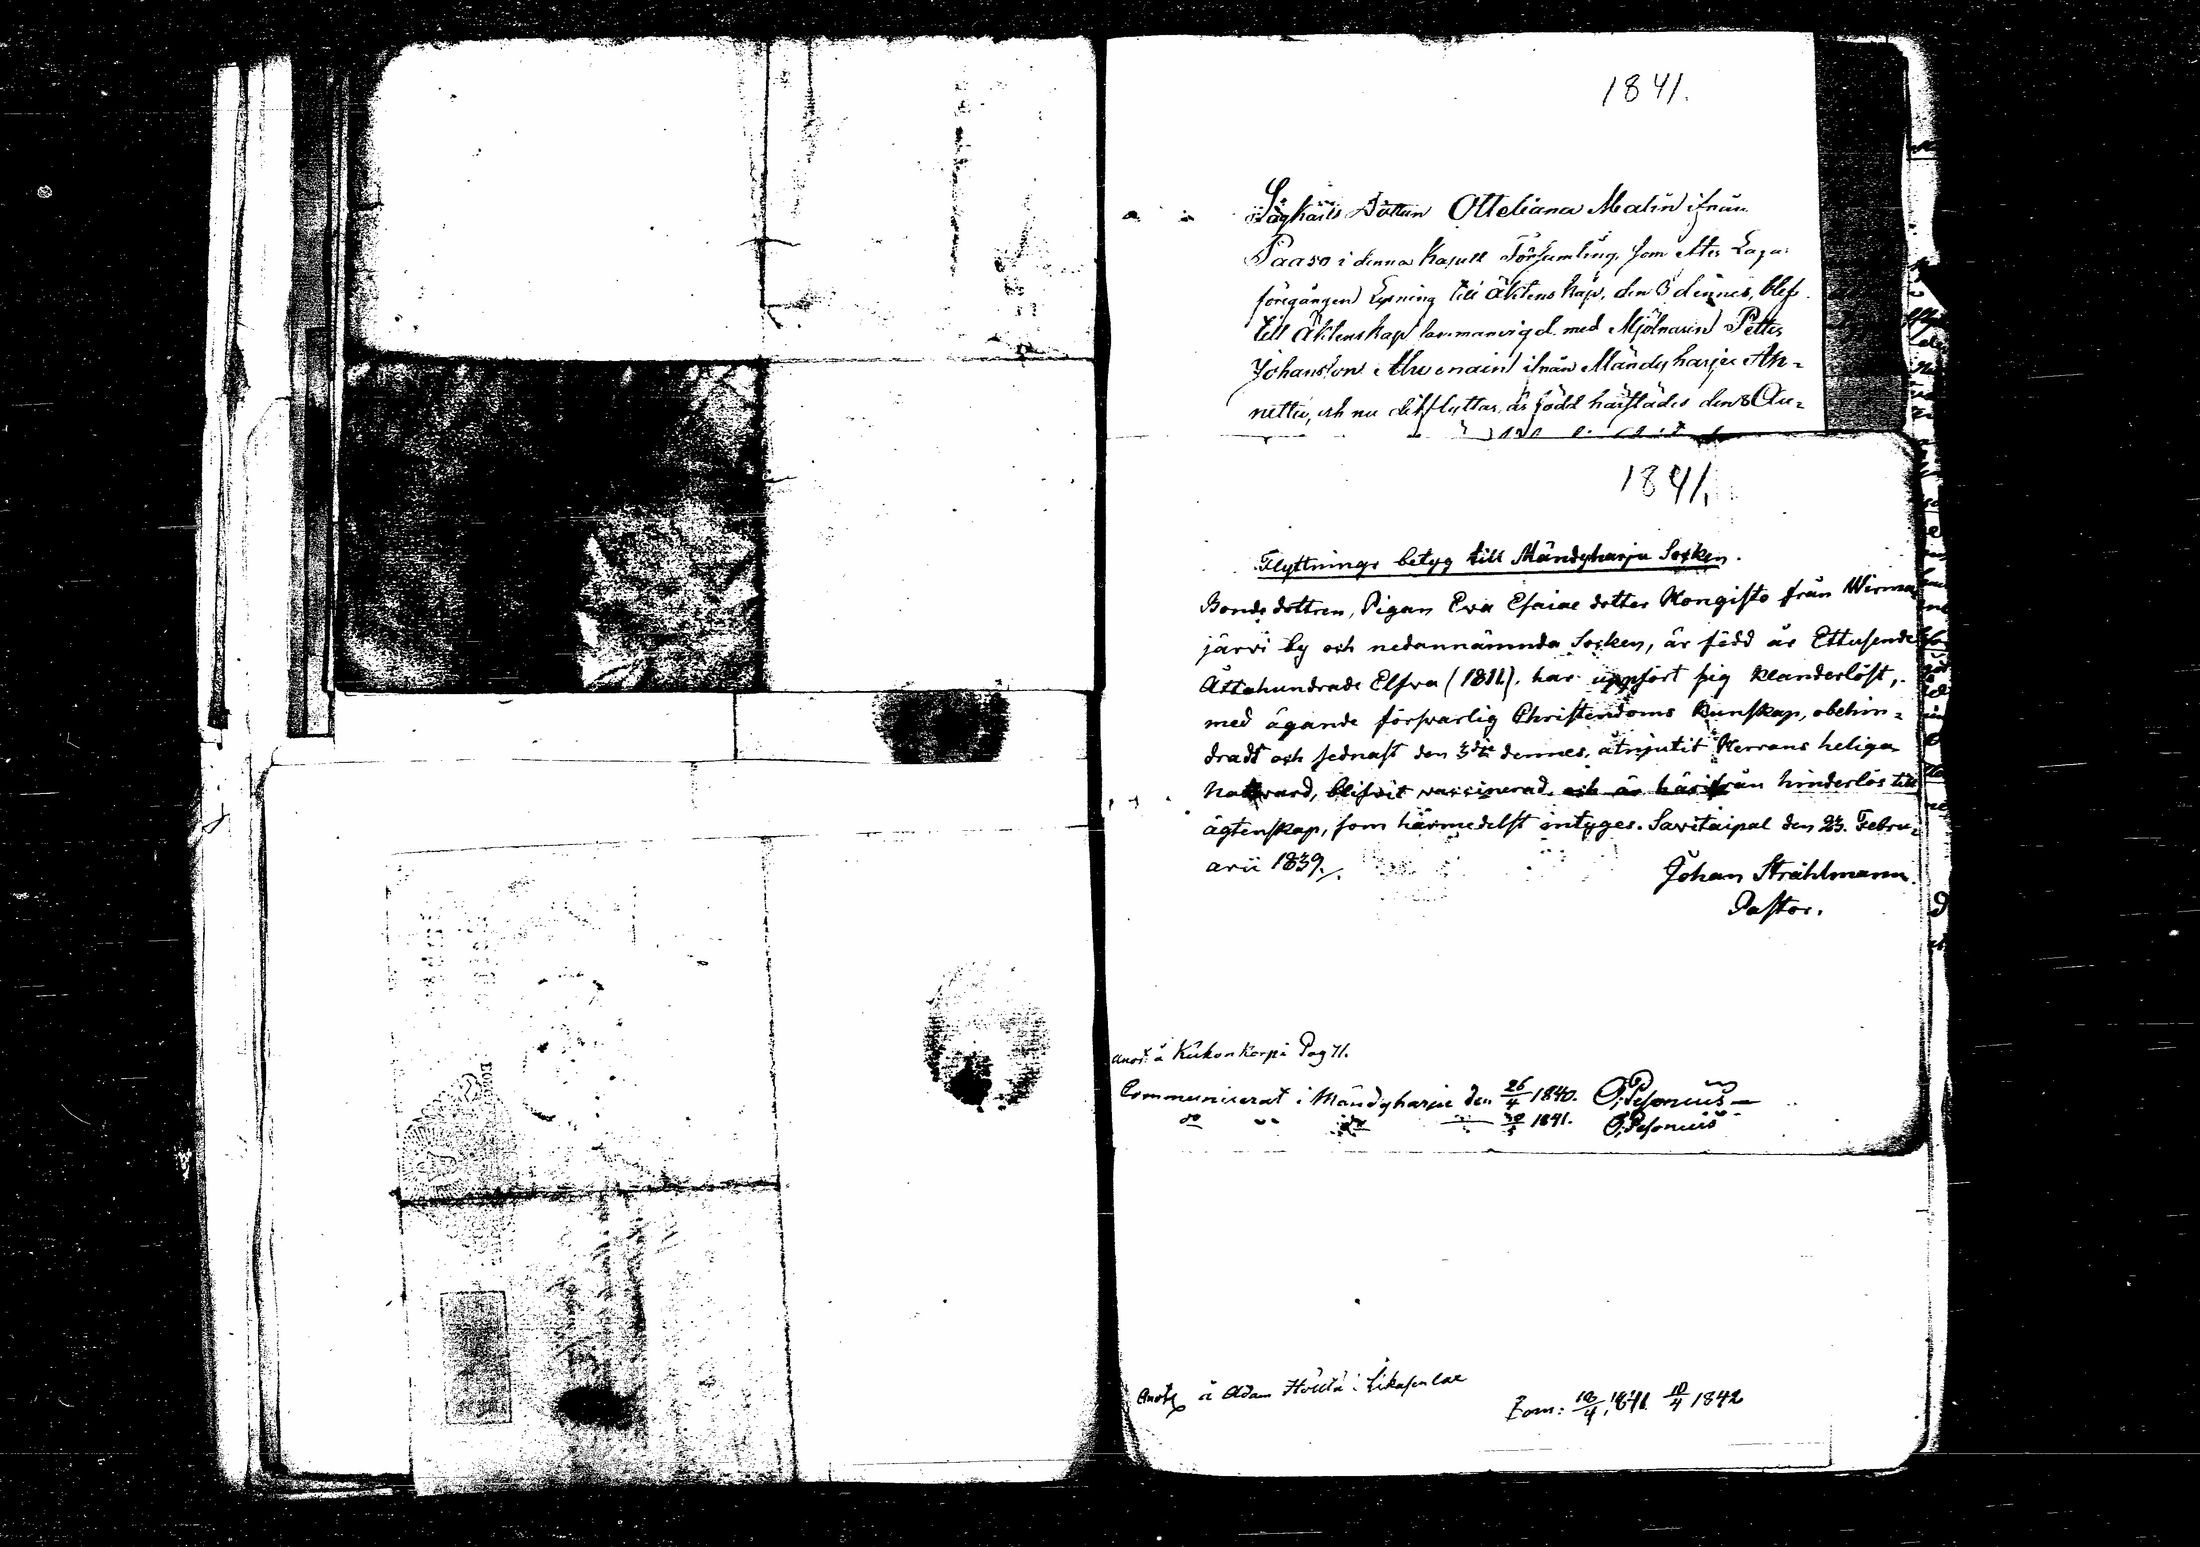 1841.
Sågkarls Dottren Otteliana Malin ifrån
Paaso i denna Kapell Församling, som efter Laga
föregången Lysning till Äktenskap, den 3 dennes, blef
till Äktenskap sammanvigd med Mjölnaren Petter
Johansson ifrån Mändyharju An-
nettu, och nu dit flyttar, är född härstädes den 8 Au-
1841.
Flyttnings betyg till Mändyharju Socken.
Bonde dottren, Pigan Eva Esaiae dotter Kongisto från Wirma
järvi by och nedannämnda Socken, är född år Ettusende
Åttahundrade Elfva (1811). har uppfört sig klanderlöst,
med ägande försvarlig Christendoms kunskap, obehin-
dradt och sednast den 3die dennes, åtnjutit Herrans heliga
Nattvard, blifvit vaccinerad och är härifrån hinderlös till
ägtenskap, som härmedelst intyges. Savitaipal den 23. Febru-
arii 1839.
Johan Stråhlmann.
Pastor.
Anot. å Kükonkorpi Pag 71.
Communicerat i Mändyharju den 26/4 1840. O. Pesonius
do 1841. O. Pesonius
Anot å Adam
Com: 18/4 1841 10/4 1842